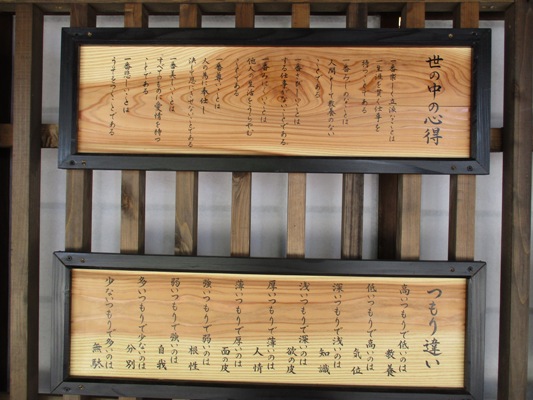 世の中の心得
一番楽しく立派なことは
一生涯を貫く仕事を
持つことである
一番みじめなことは
人間として教養のない
ことである
一番さびしいことは
する仕事のないことである
一番みにくいことは
他人の生活をうらやむ
ことである
一番尊いことは
人の為に奉仕し
決して恩にきせないことである
一番美しいことは
すべてのものに愛情を持つ
ことである
一番悲しいことは
うそをつくことである
つもり違い
高いつもりで低いのは 教養
低いつもりで高いのは 気位
深いつもりで浅いのは 知識
浅いつもりで深いのは 欲の皮
厚いつもりで薄いのは 人情
薄いつもりで厚いのは 面の皮
強いつもりで弱いのは 根性
弱いつもりで強いのは 自我
多いつもりで少ないのは 分別
少ないつもりで多いのは 無駄